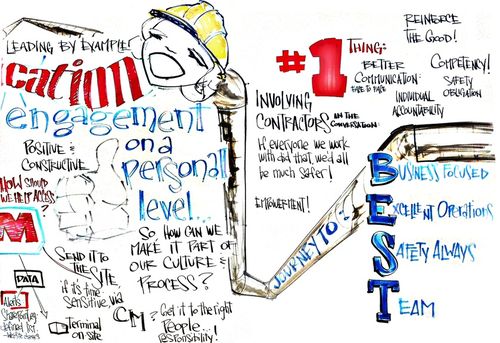 LEADING BY EXAMPLE!
cation
engagement
on a
personal
level...
POSITIVE &
CONSTRUCTIVE
HOW SHOULD
WE HELP ACCESS
?
M
DATA
Alerts
SEND IT TO
THE SITE,
if it's time
sensitive, via
CM?
Terminal
on-site
SO HOW CAN WE
MAKE IT PART OF
OUR CULTURE &
PROCESS?
Get it to the right
People...
#1 THING:
BETTER
COMMUNICATION:
FACE TO FACE
REINFORCE
THE GOOD!
COMPETENCY!
SAFETY
OBLIGATION
INDIVIDUAL
ACCOUNTABILITY
INVOLVING
CONTRACTORS IN THE
CONVERSATION:
If everyone we work
with did that, we'd all
be much safer!
EMPOWERMENT!
JOURNEY TO:
BUSINESS FOCUSED
EXCELLENT OPERATIONS
SAFETY ALWAYS
TEAM